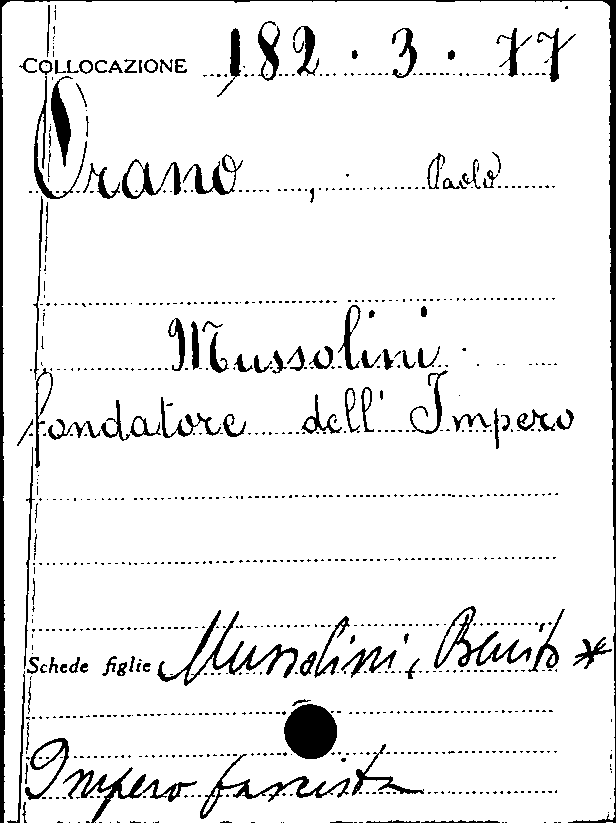 COLLOCAZIONE 182 · 3 · 77
Orano, Paolo
Mussolini
fondatore dell' Impero
Schede figlie Mussolini, Benito *
Impero fascista